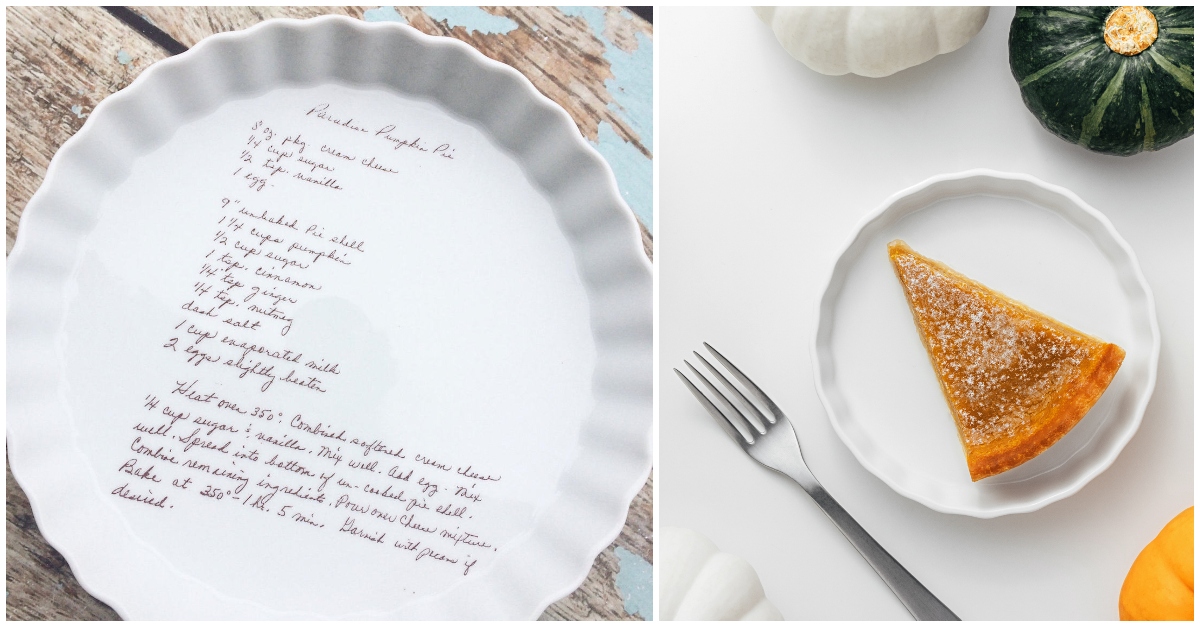 Paradise Pumpkin Pie
8 oz. pkg. cream cheese
1/4 cup sugar
1/2 tsp. vanilla
1 egg.
9" unbaked Pie shell
1 1/4 cups pumpkin
1/2 cup sugar
1 tsp. cinnamon
1/4 tsp ginger
1/4 tsp. nutmeg
dash salt
1 cup evaporated milk
2 eggs slightly beaten
Heat oven 350°. Combined softened cream cheese
1/4 cup sugar & vanilla. Mix well. Add egg. Mix
well. Spread into bottom of un-cooked pie shell.
Combine remaining ingredients. Pour over Cheese mixture.
Bake at 350° - 1 hr. 5 min. Garnish with pecans if
desired.